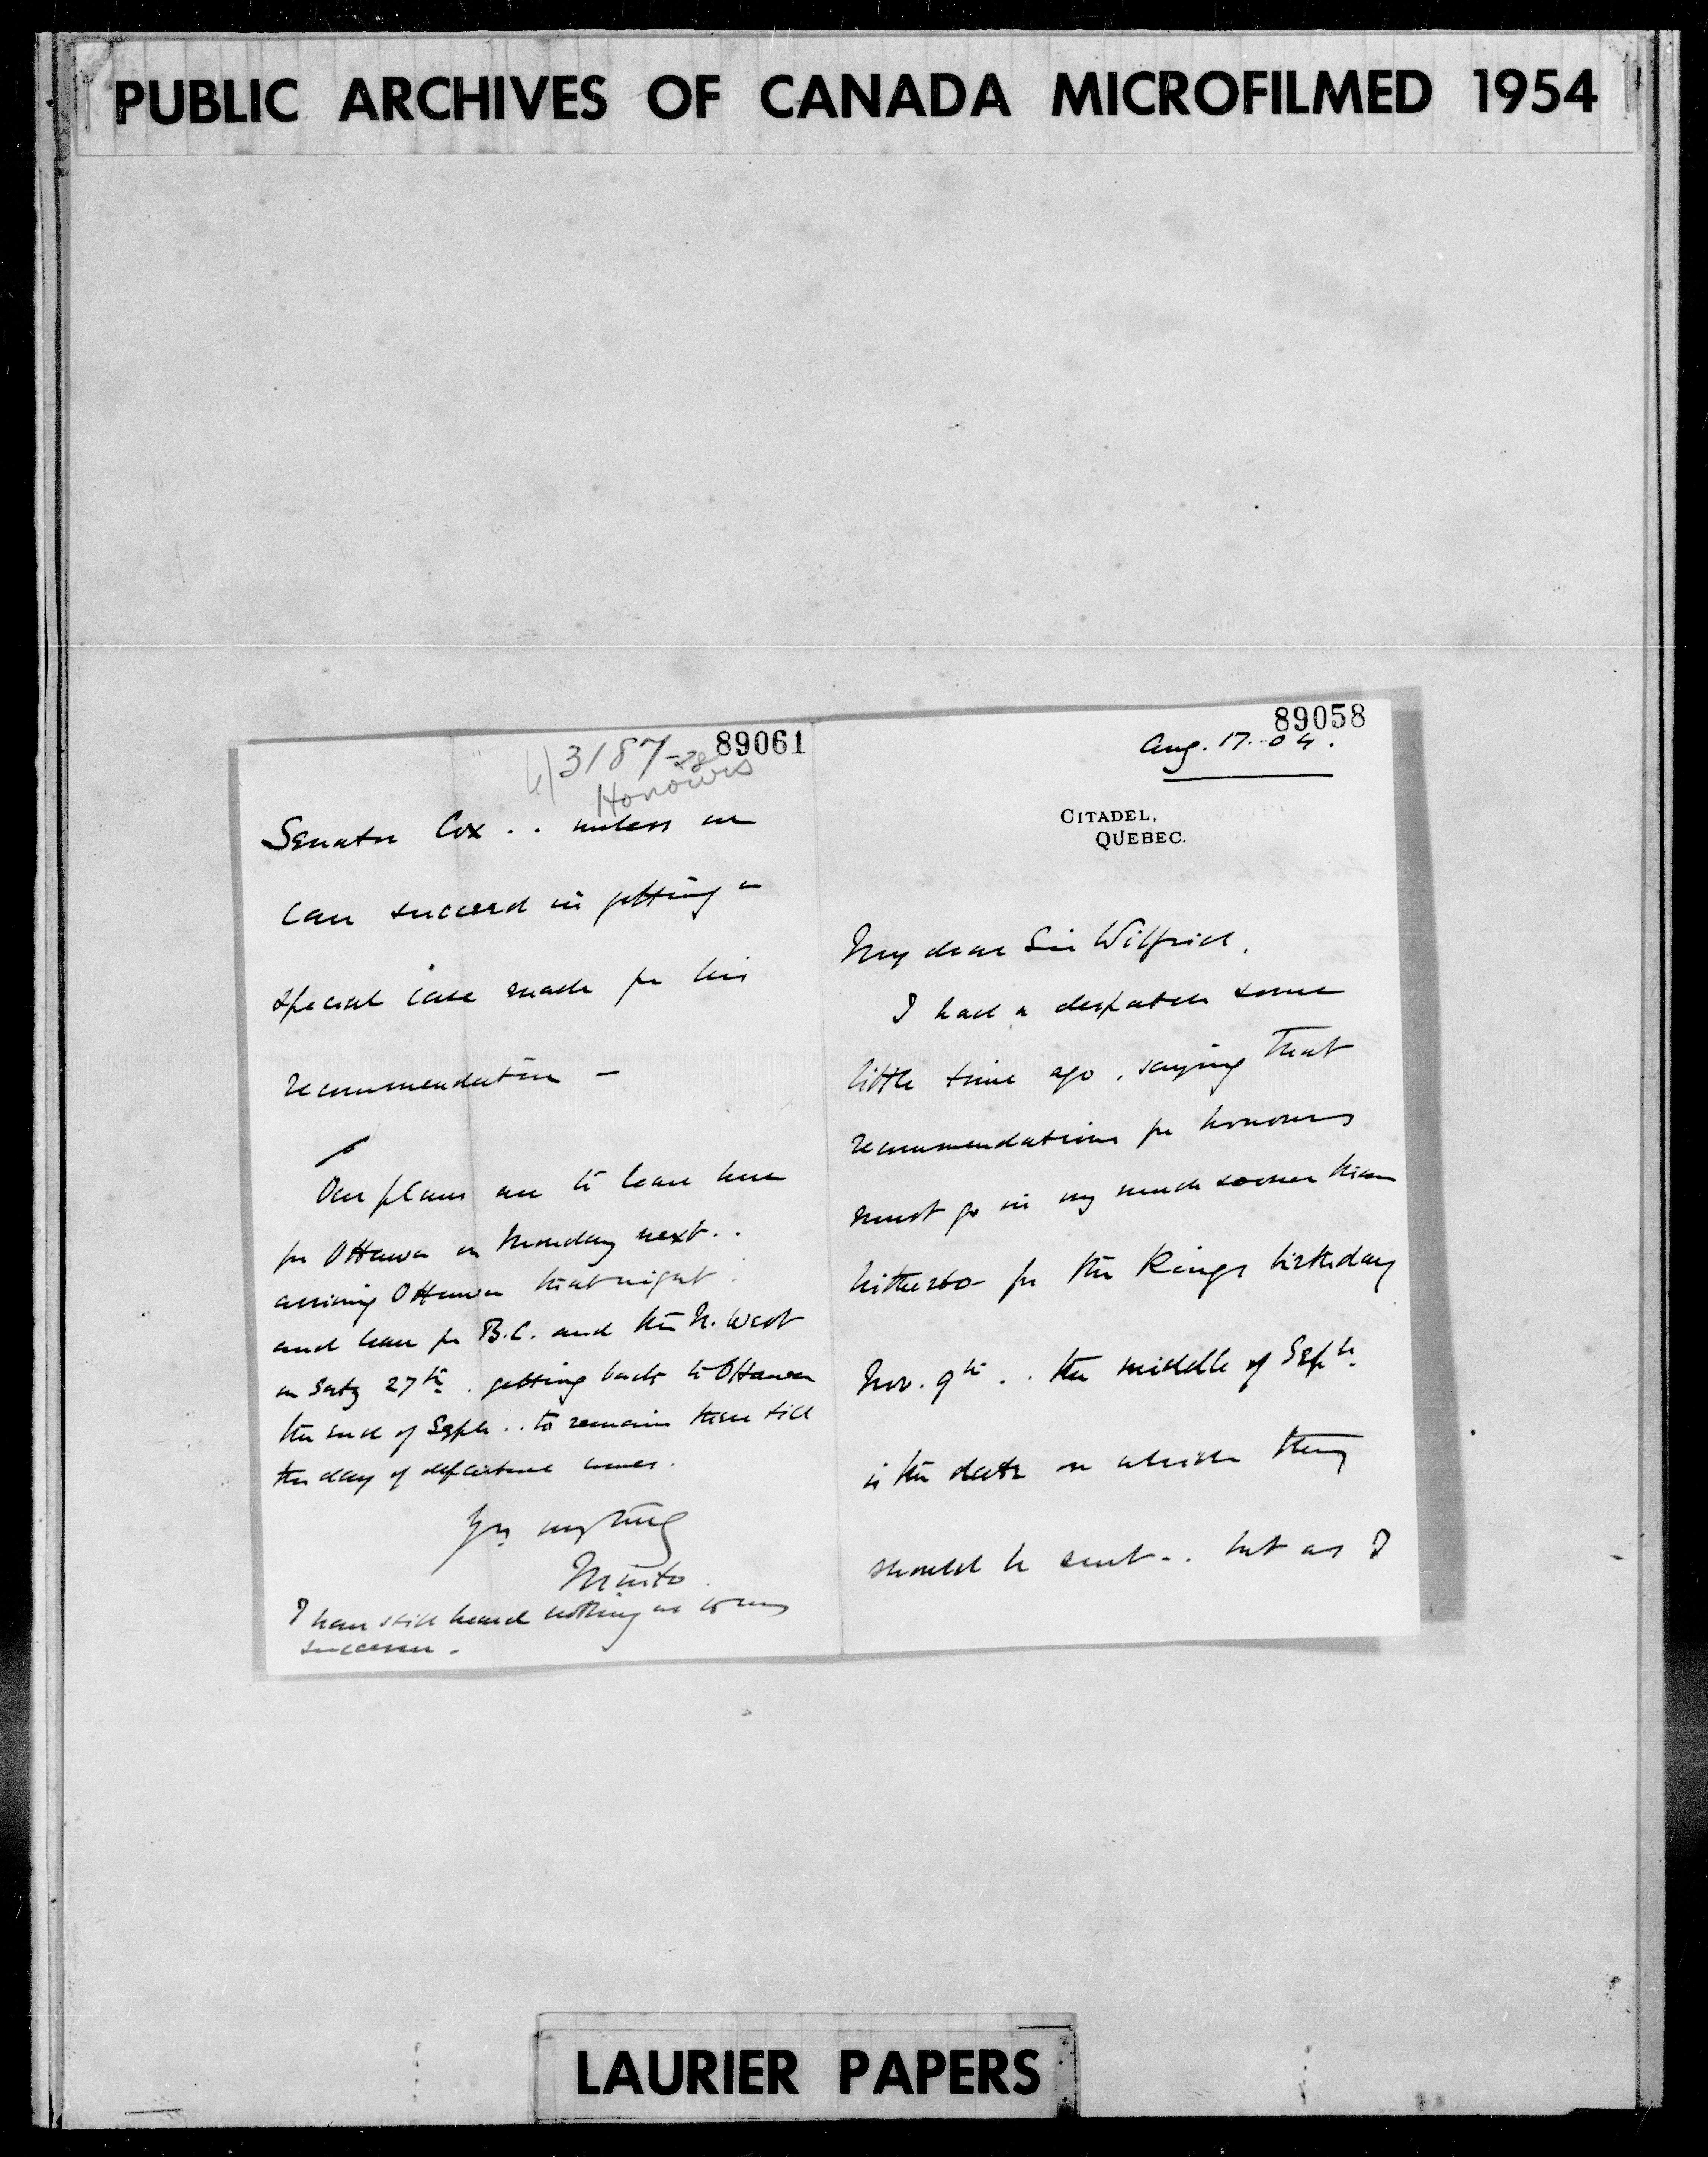 PUBLIC ARCHIVES OF CANADA MICROFILMED 1954
89061
3187-28
Honours
Senator Cox .. unless we
can succeed in getting a
special case made for his
recommendation -
Our plans are to leave here
for Ottawa on Monday next..
arriving Ottawa that night
and leave for B.C. and the N. West
on Saty 27th. getting back to Ottawa
the end of Septr .. to remain there till
the day of departure comes.
Yrs very truly
Minto
I have still heard nothing as to my
successor -
89058
Aug. 17. 04.
CITADEL,
QUEBEC.
My dear Sir Wilfrid,
I had a despatch some
little time ago, saying that
recommendations for honours
must go in very much sooner than
hitherto for the Kings birthday
Nov. 9th .. the middle of Septr.
is the date on which they
should be sent .. but as I
LAURIER PAPERS